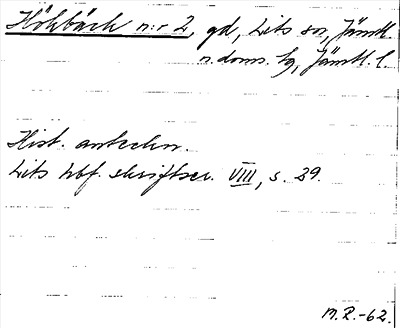 Högbäck n:r 2, gd, Lits sn, Jämtl.
n. doms. tg, Jämtl. l.
Hist. anteckn.
Lits hbf. skriftser. VIII, s. 29.
M.R.-62.